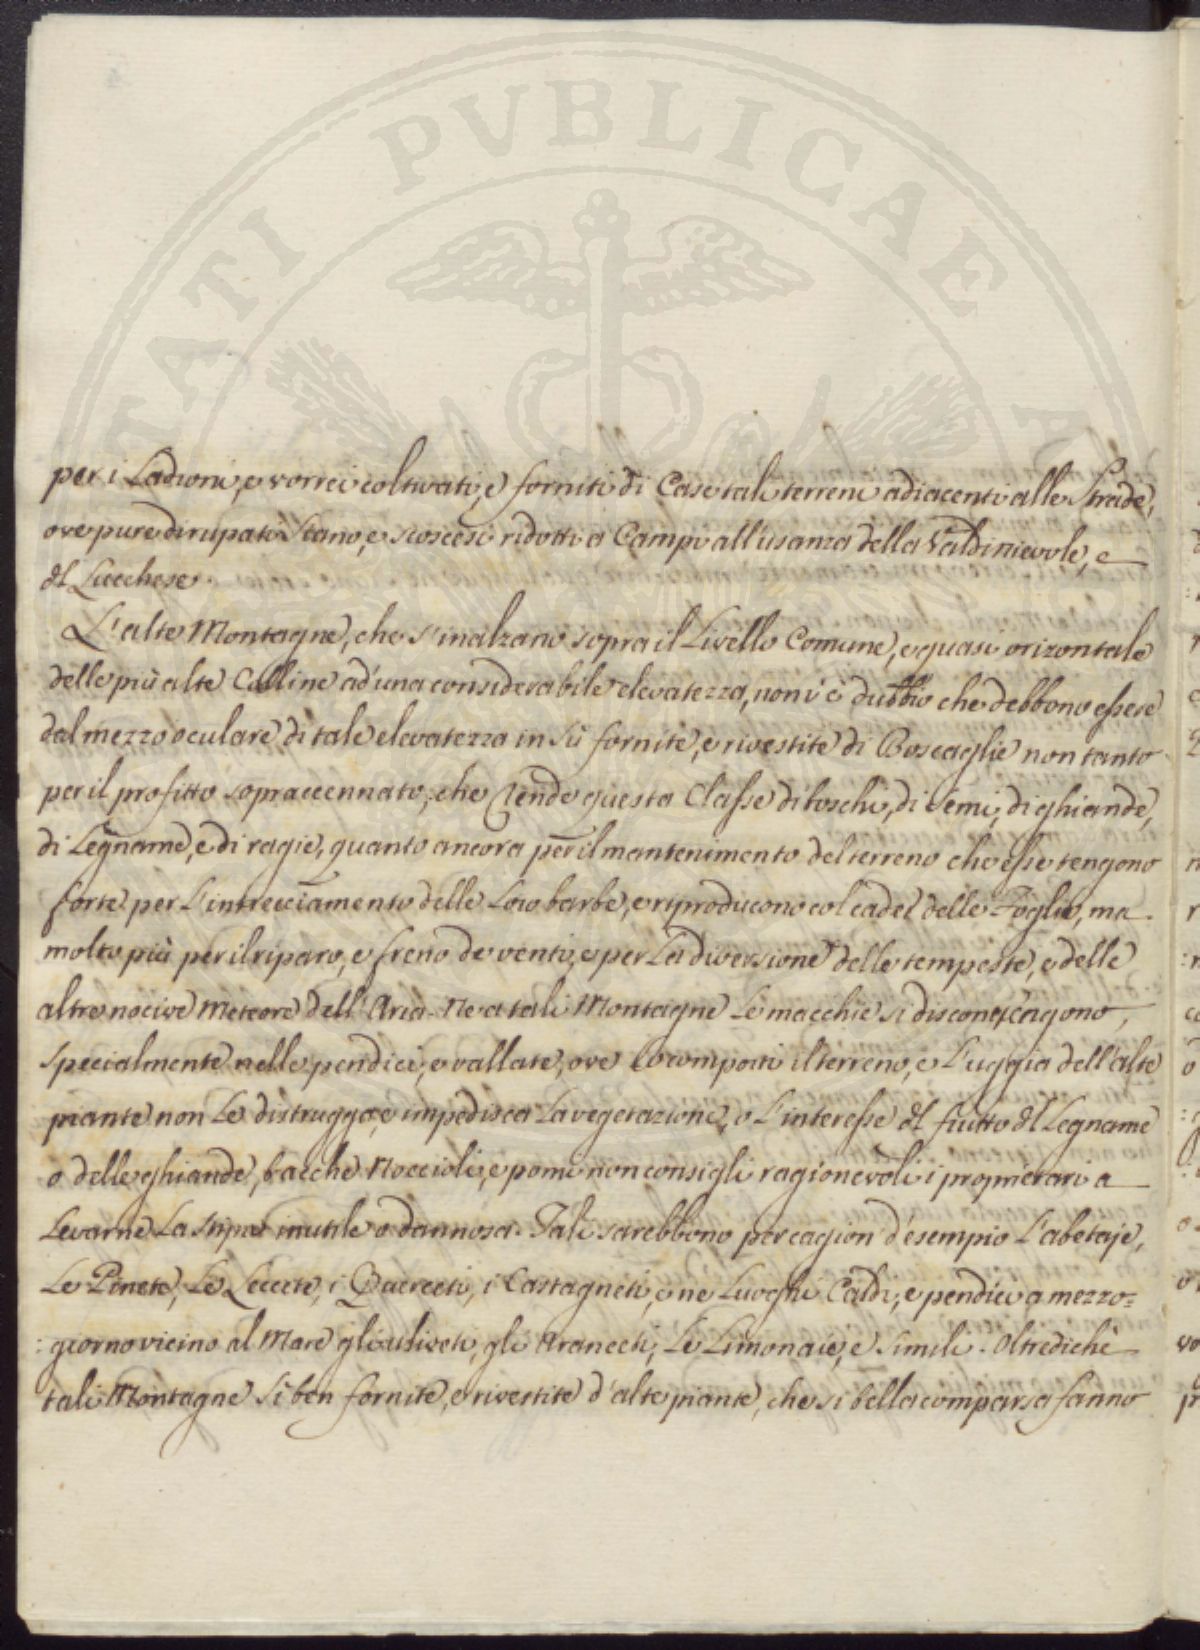 PVBLICAE
per i Ladroni, e vorrei coltivati, e forniti di Case tali terreni adiacenti alle Strade,
ove pure dirupati Siano, e scoscesi ridotti a Campi all'usanza della Valdinievole, e
dl Lucchese.
L'alte Montagne, che s'inalzano sopra il Livello Comune, e quasi orizontale
delle più alte Colline ad'una considerabile elevatezza, non v'è dubbio che debbono essere
dal mezzo oculare di tale elevatezza in sù fornite, e rivestite di Boscaglie non tanto
per il profitto sopraccennato, che rende questa Classe di boschi, di semi, di ghiande,
di Legname, e di ragie, quanto ancora per il mantenimento del terreno che esse tengono
forte per L'intrecciamento delle Loro barbe, e riproducono col cader delle Foglie, ma
molto più per il riparo, e freno de venti, e per La diversione delle tempeste, e delle
altre nocive Meteore dell'Aria. Ne a tali Montagne Le macchie si disconvengono,
specialmente nelle pendici, e vallate, ove Lo comporti il terreno, e L'uggia dell'alte
piante non Le distrugga, e impedisca La vegetazione, o L'interesse dl frutto dl Legname
o delle ghiande, bacche Noccioli, e pomi non consigli ragionevoli i proprietari a
Levarne La stipa inutile o dannosa. Tali sarebbono per cagion d'esempio L'abetaje,
Le Pinete, Le Leccete, i Querceti, i Castagneti, e ne Luoghi Caldi, e pendici a mezzo=
:giorno vicino al Mare gli uliveti, gli Aranceti, Le Limonaie, e simili. Oltredichè
tali Montagne si ben fornite, e rivestite d'alte piante, che si bella comparsa fanno